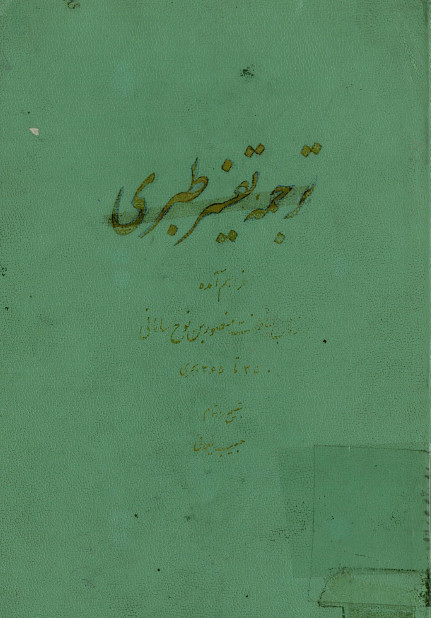 ترجمهٔ تفسیر طبری
فراهم آمده
در زمان سلطنت منصور بن نوح سامانی
۳۵۰ تا ۳۶۵ هجری
بتصحیح و اهتمام
حبیب یغمائی